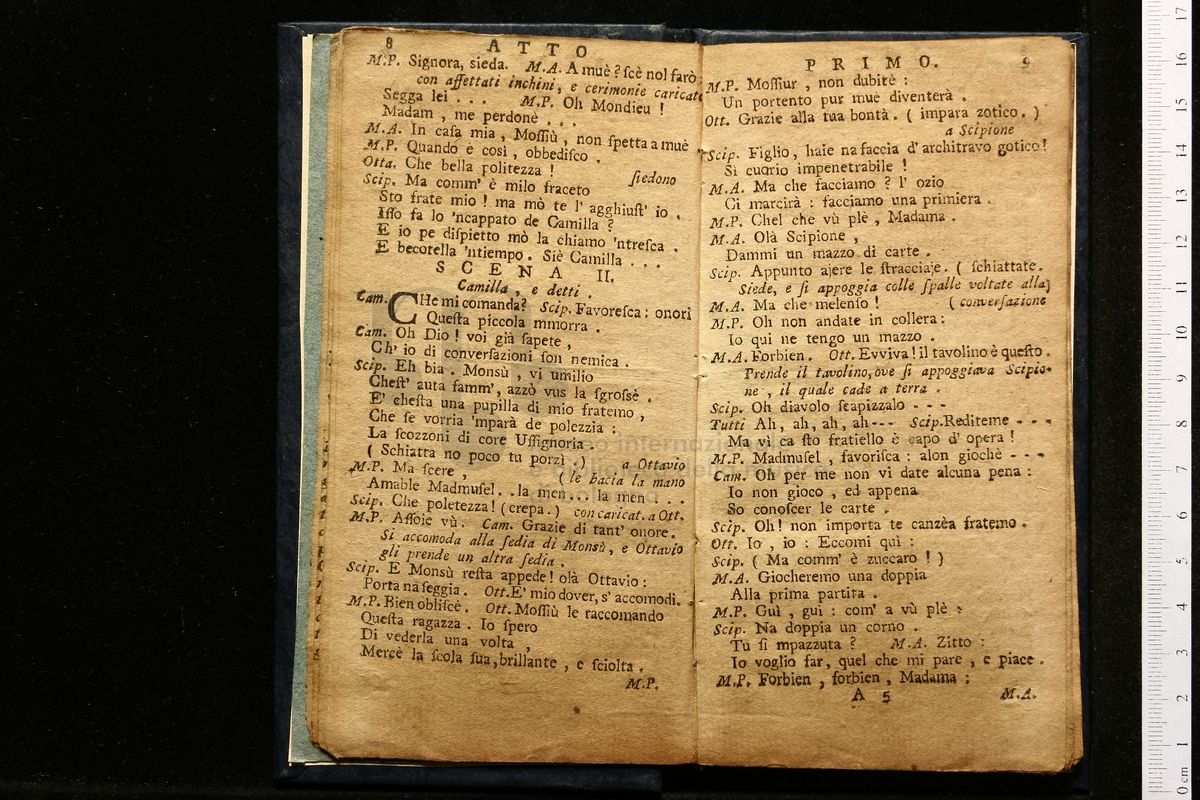 8 ATTO
M.P. Signora, sieda. M.A. A muè? ſcè nol farò;
con affettati inchini, e cerimonie caricate
Segga lei . . . M.P. Oh Mondieu !
Madam , me perdonè . . .
M.A. In caſa mia , Moſſiù , non ſpetta a muè
M.P. Quando è così , obbediſco .
Otta. Che bella politezza ! ſiedono
Scip. Ma comm' è milo fraceto
Sto frate mio ! ma mò te l' agghiuſt' io .
Iſſo fa lo 'ncappato de Camilla ?
E io pe diſpietto mò la chiamo 'ntreſca .
E becotella 'ntiempo . Siè Camilla . . .
SCENA II.
Camilla , e detti .
Cam. CHe mi comanda? Scip. Favoreſca : onori
Queſta piccola mmorra .
Cam. Oh Dio ! voi già ſapete ,
Ch' io di converſazioni ſon nemica .
Scip. Eh bia . Monsù , vi umilio
Cheſt' auta famm', azzò vus la ſgroſsè .
E' cheſta una pupilla di mio fratemo ,
Che ſe vorria 'mparà de polezzia :
La ſcozzoni di core Uſſignoria .
( Schiatta no poco tu porzì .) a Ottavio
M.P. Ma ſcere , ( le bacia la mano
Amable Madmuſel . . la men... la men . . .
Scip. Che poletezza! (crepa.) con caricat. a Ott.
M.P. Aſſoie vù . Cam. Grazie di tant' onore.
Si accomoda alla ſedia di Monsù, e Ottavio
gli prende un altra ſedia .
Scip. E Monsù reſta appede! olà Ottavio :
Porta na ſeggia . Ott. E' mio dover, s' accomodi.
M.P. Bien obliſcè . Ott. Moſſiù le raccomando
Queſta ragazza . Io ſpero
Di vederla una volta ,
Mercè la ſcola ſua, brillante , e ſciolta .
M.P.
PRIMO. 9
M.P. Moſſiur , non dubitè :
Un portento pur muè diventerà .
Ott. Grazie alla tua bontà . ( impara zotico . )
a Scipione
Scip. Figlio , haie na faccia d' architravo gotico!
Sì cuorio impenetrabile !
M.A. Ma che facciamo ? l' ozio
Ci marcirà : facciamo una primiera .
M.P. Chel che vù plè , Madama .
M.A. Olà Scipione ,
Dammi un mazzo di carte .
Scip. Appunto ajere le ſtracciaje . ( ſchiattate .
Siede, e ſi appoggia colle ſpalle voltate alla
M.A. Ma che melenſo ! ( converſazione
M.P. Oh non andate in collera :
Io qui ne tengo un mazzo .
M.A. Forbien . Ott. Evviva ! il tavolino è queſto .
Prende il tavolino, ove ſi appoggiava Scipio-
ne , il quale cade a terra .
Scip. Oh diavolo ſcapizzalo - - -
Tutti Ah, ah, ah, ah - - - Scip. Rediteme - - -
Ma vi ca ſto fratiello è capo d' opera !
M.P. Madmuſel , favoriſca : alon giochè - - -
Cam. Oh per me non vi date alcuna pena :
Io non gioco , ed appena
So conoſcer le carte .
Scip. Oh! non importa te canzèa fratemo .
Ott. Io , io : Eccomi quì :
Scip. ( Ma comm' è zuccaro ! )
M.A. Giocheremo una doppia
Alla prima partita .
M.P. Guì , gui : com' a vù plè :
Scip. Na doppia un corno .
Tu ſi mpazzuta ? M.A. Zitto :
Io voglio far, quel che mi pare , e piace .
M.P. Forbien , forbien , Madama :
A 5 M.A.